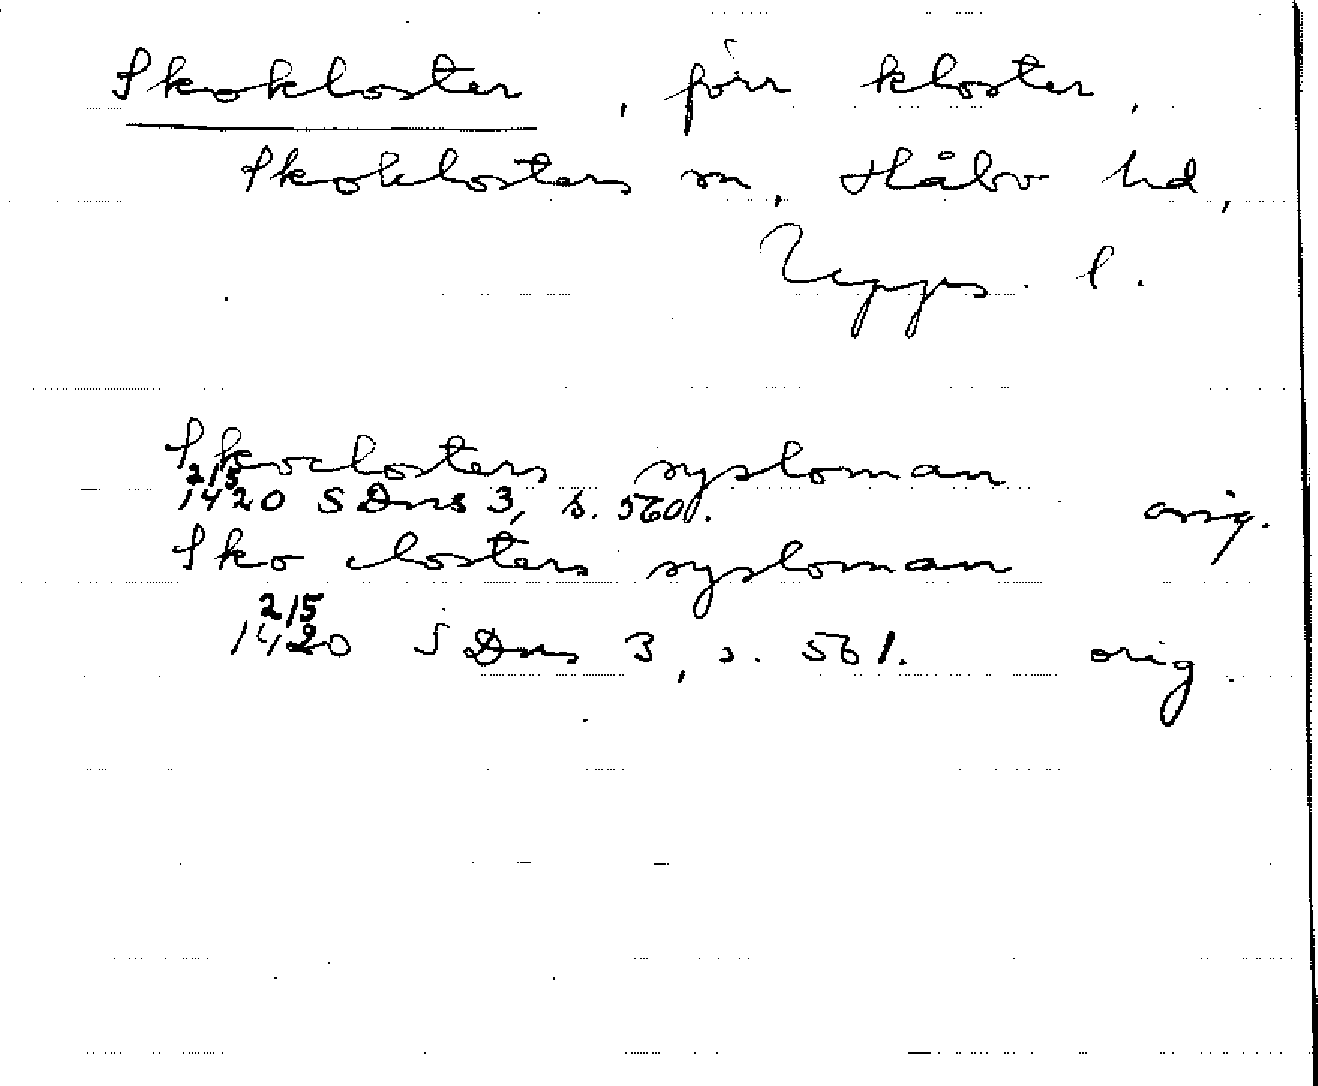 Skokloster, förr kloster,
Skoklosters sn, Håbo hd,
Upps. l.
Skoclosters sysloman
2/5
1420 SDns 3, s. 560. orig.
Sko closters sysloman
2/5
1420 SDns 3, s. 561. orig.